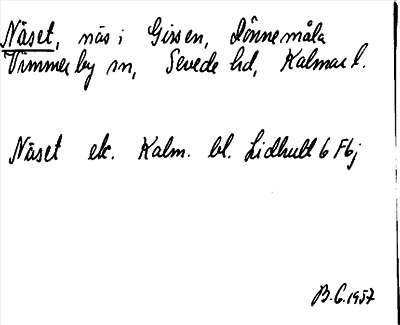 Näset, näs i Girsen, Lönnemåla
Vimmerby sn, Sevede hd, Kalmar l.
Näset ek. Kalm. bl. Lidhult 6 F6j
B.G. 1957